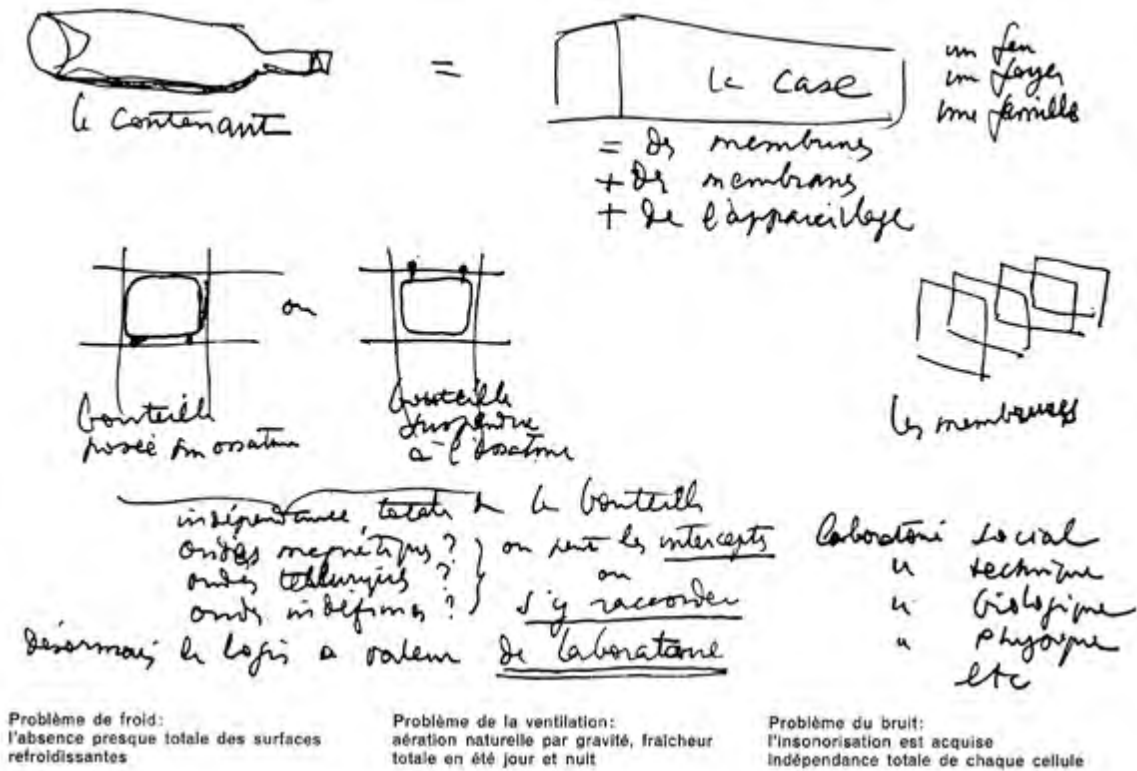 le contenant
=
la case
un feu
un foyer
une famille
= des membrures
+ des membranes
+ de l'appareillage
ou
bouteille
posée sur ossature
bouteille
suspendue
à l'ossature
les membranes
indépendance totale de la bouteille
ondes magnétiques ?
ondes telluriques ?
ondes indéfinies ?
on peut les intercepter
ou
s'y raccorder
désormais le logis a valeur de laboratoire
laboratoire social
" technique
" biologique
" physique
etc
Problème de froid:
l'absence presque totale des surfaces
refroidissantes
Problème de la ventilation:
aération naturelle par gravité, fraîcheur
totale en été jour et nuit
Problème du bruit:
l'insonorisation est acquise
indépendance totale de chaque cellule